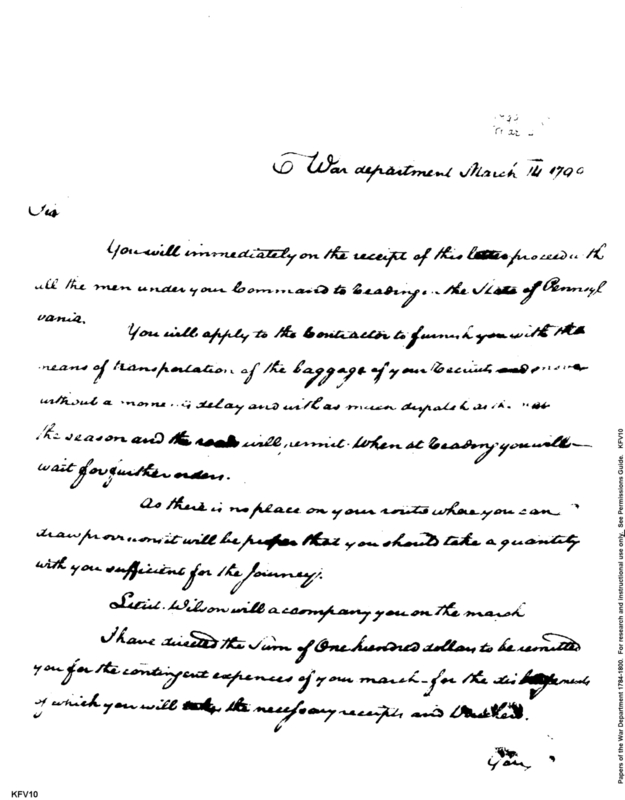 War department March 14 1790
Sir
You will immediately on the receipt of this letter proceed with
all the men under your Command to Reading in the State of Pennsyl
vania.
You will apply to the Contractor to furnish you with the
means of transportation of the baggage of your Recruits and move
without a moments delay and with as much dispatch as the
the season and the roads will permit. When at Reading you will
wait for further orders.
As there is no place on your route where you can
draw provisions it will be proper that you should take a quantity
with you sufficient for the Journey.
Lieut. Wilson will accompany you on the march
I have directed the Sum of One hundred dollars to be remitted
you for the contingent expences of your march - for the disbursements
of which you will take the necessary receipts and Vouchers.
KFV10
Papers of the War Department 1784-1800. For research and instructional use only. See Permissions Guide. KFV10